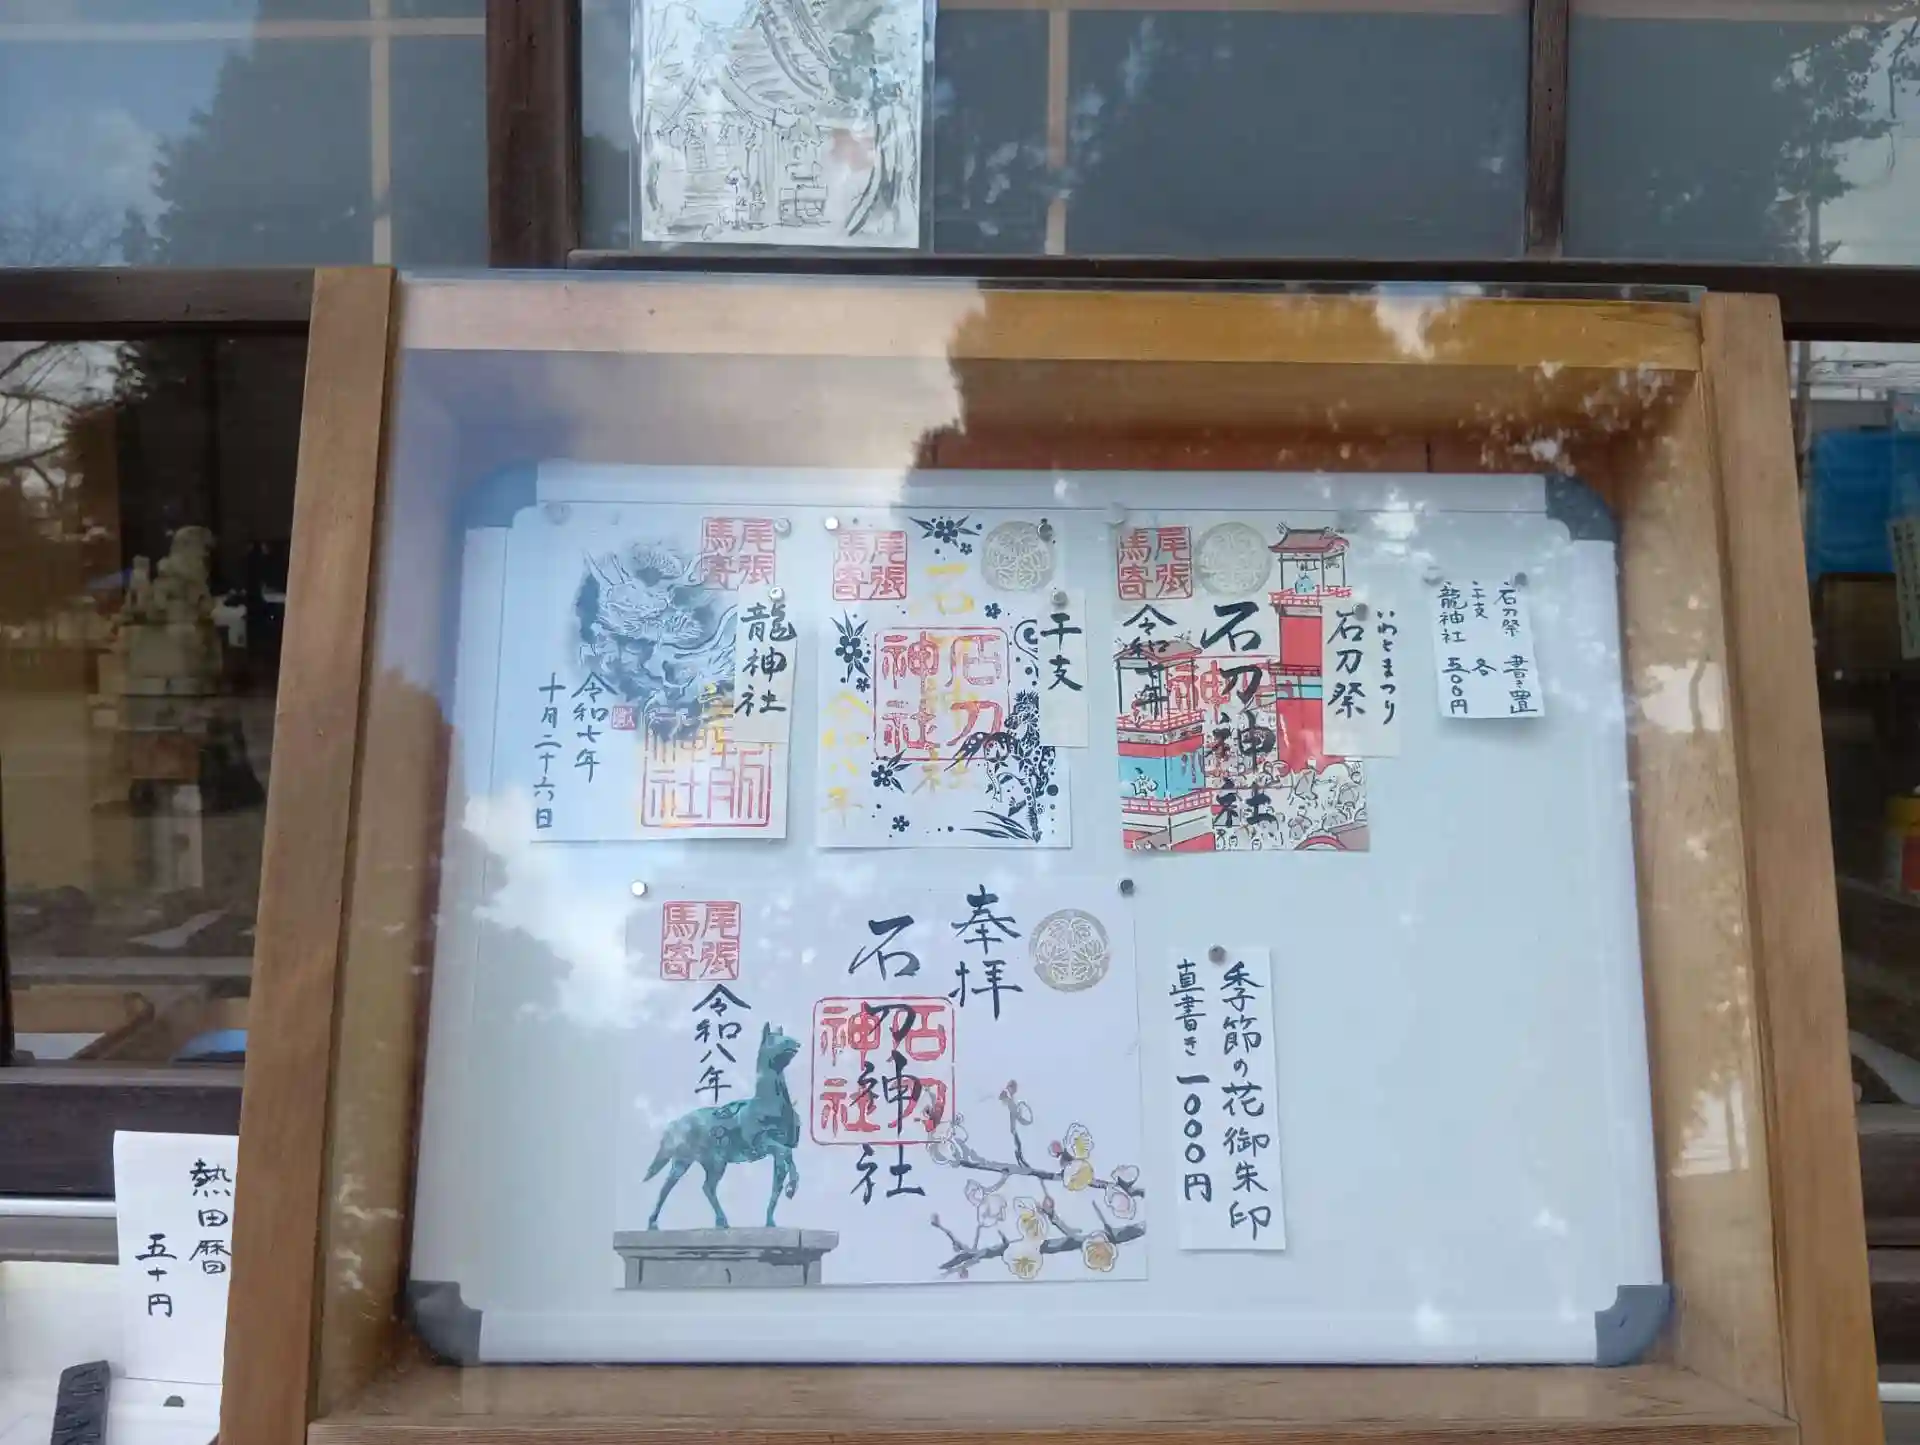 尾張
馬寄
龍神社
令和七年
十月二十六日
尾張
馬寄
干支
石刀
神社
令和八年
尾張
馬寄
いわとまつり
石刀祭
石刀神社
令和七年
石刀祭 書き置
干支 各
龍神社 五〇〇円
奉拝
石刀神社
石刀
神社
尾張
馬寄
令和八年
季節の花御朱印
直書き 一〇〇〇円
熱田暦
五十円